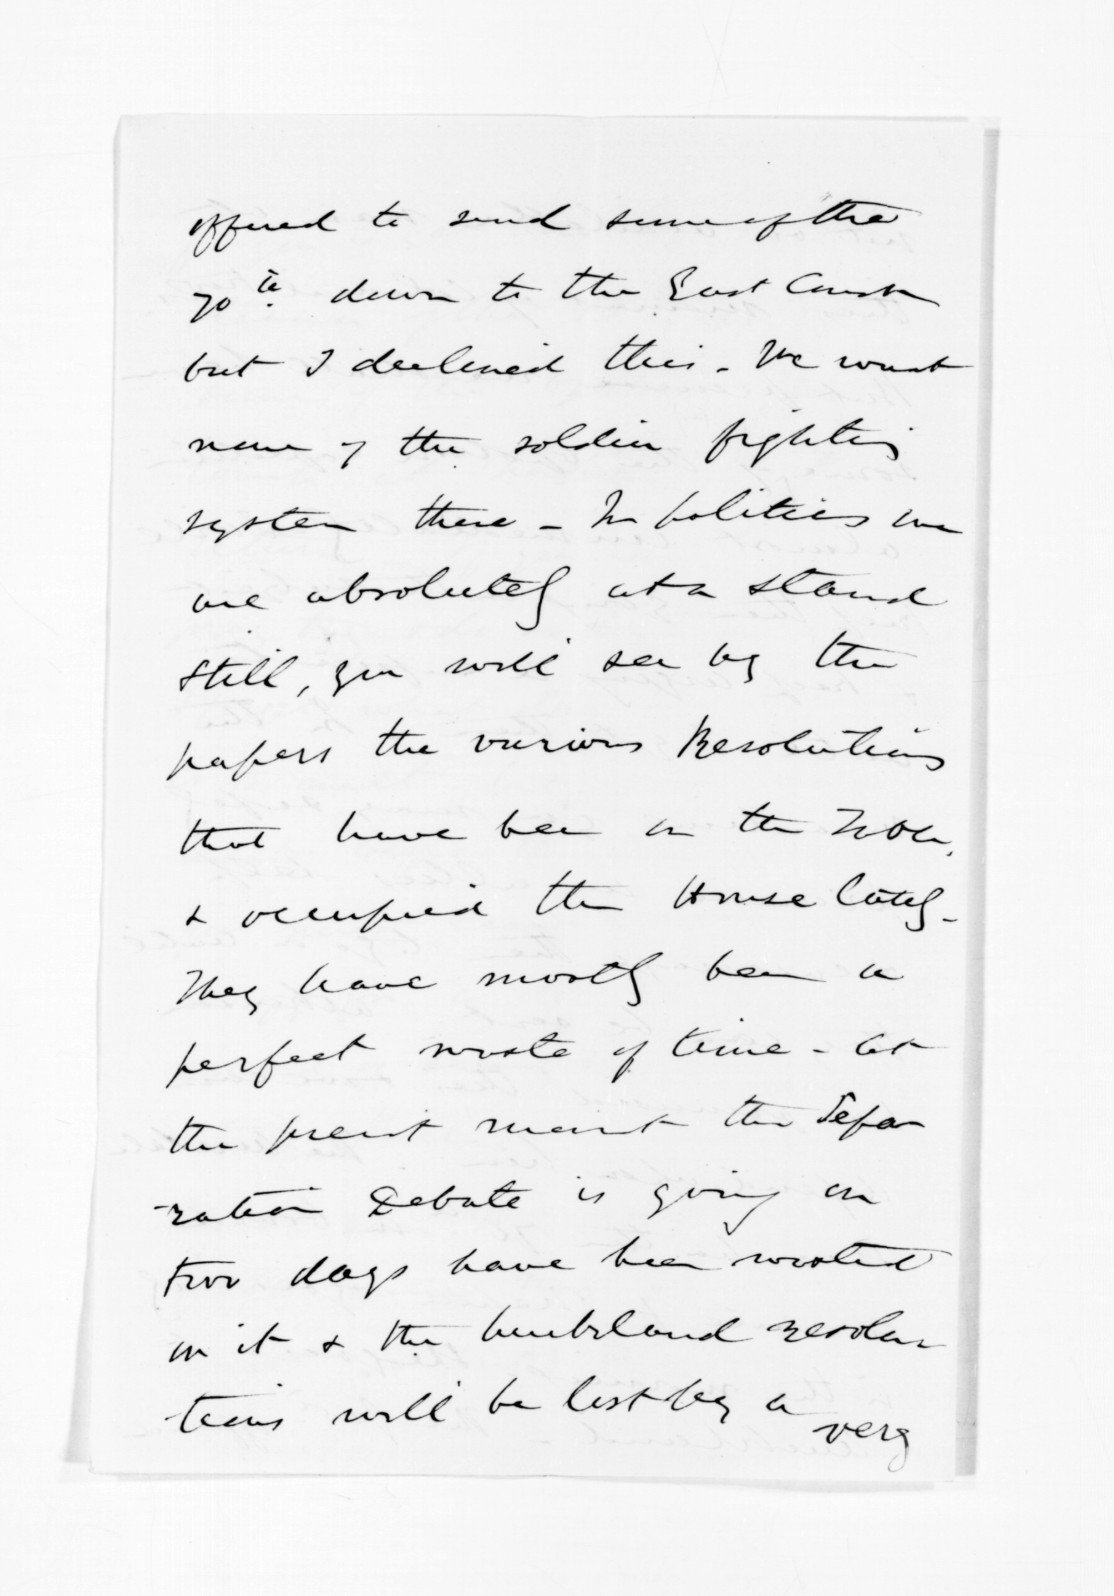 offered to send some of the
70th. down to the East Coast
but I declined this - We want
none of the soldier fighting
system there - In politics we
are absolutely at a stand
still, you will see by the
papers the various Resolutions
that have been on the Table,
& occupied the House lately -
They have mostly been a
perfect waste of time - At
the present moment the Sepa
ration Debate is going on
two days have been wasted
on it & the Auckland resolu
tions will be lost by a
very